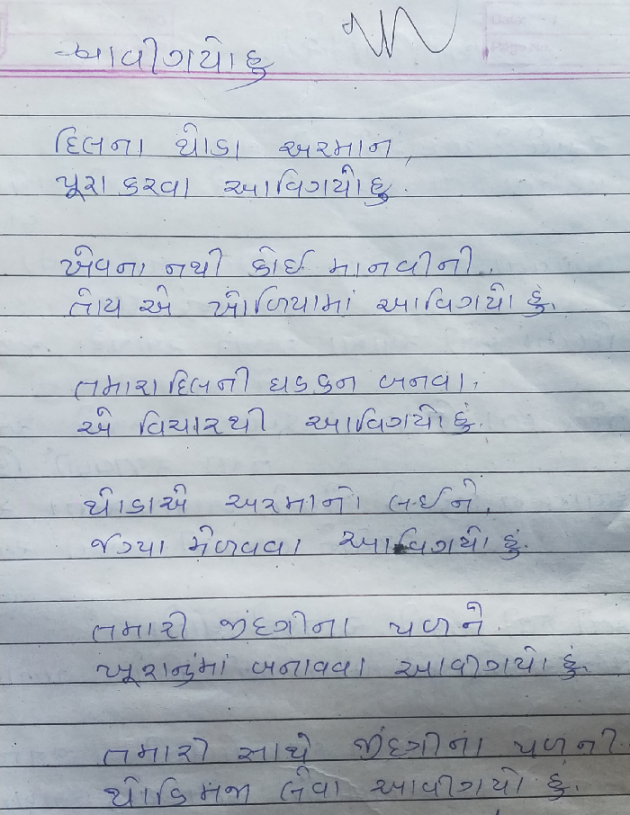 આવીગયો છુ
દિલના થોડા અરમાન,
પૂરા કરવા આવિગયો છુ.
ખેવના નથી કોઈ માનવીની,
તોય એ ખોળિયામાં આવિગયો છું.
તમારા દિલની ધડકન બનવા,
એ વિચારથી આવિગયો છું.
થોડાએ અરમાનો લઈને,
જગ્યા મેળવવા આવિગયો છું.
તમારી જીંદગીના પળને
ખૂશનુંમાં બનાવવા આવીગયો છું.
તમારી સાથે જીંદગીના પળની
થોડિ મજા લેવા આવીગયો છું.